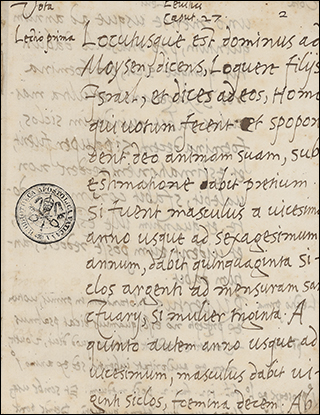 Vota
Leuitici
Caput 27.
2
Lectio prima
Locutusque est dominus ad
Moysen, dicens, Loquere filijs
Israel, et dices ad eos, Homo
qui uotum fecerit et spopon
derit deo animam suam, sub
estimatione dabit pretium
Si fuerit masculus a uicesimo
anno usque ad sexagesimum
annum, dabit quinquaginta si-
clos argenti ad mensuram san
ctuary, si mulier triginta. A
quinto autem anno usque ad
uicesimum, masculus dabit ui
ginti siclos, foemina decem. Ab